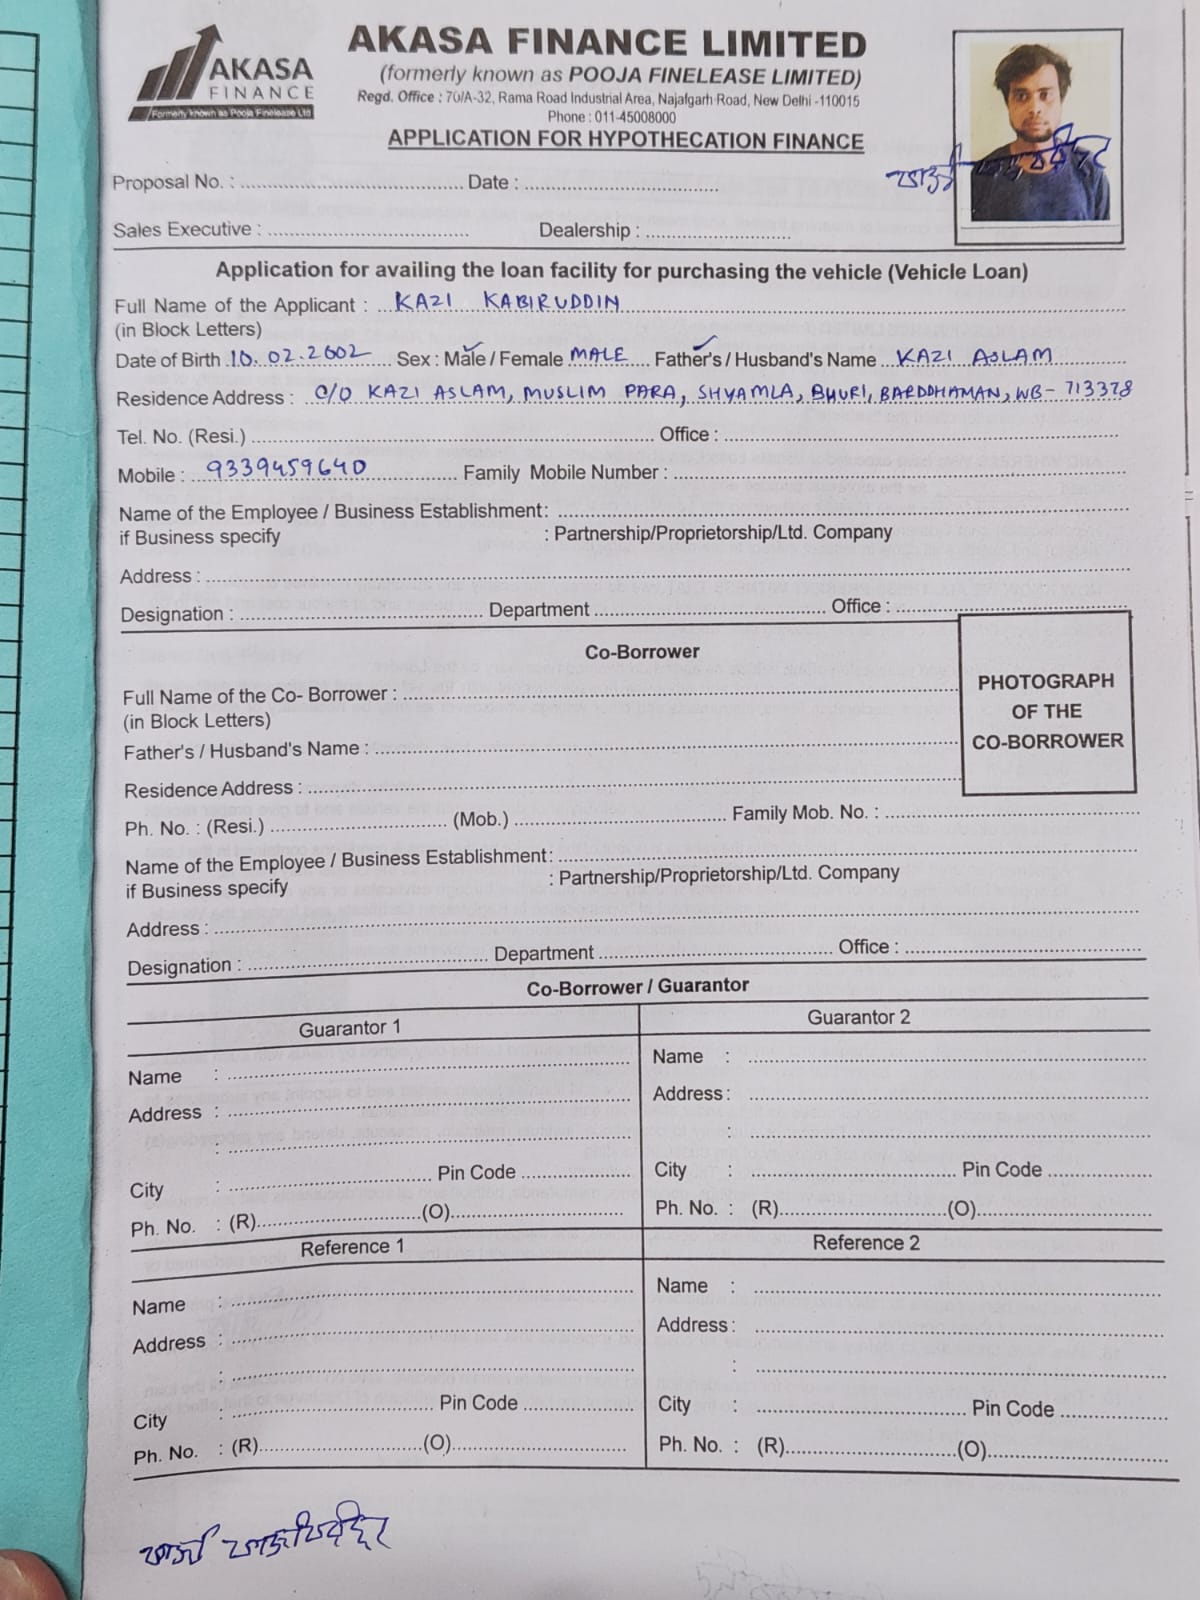 AKASA
FINANCE
Formerly known as Pooja Finelease Ltd
AKASA FINANCE LIMITED
(formerly known as POOJA FINELEASE LIMITED)
Regd. Office : 70/A-32, Rama Road Industrial Area, Najafgarh Road, New Delhi -110015
Phone : 011-45008000
APPLICATION FOR HYPOTHECATION FINANCE
Proposal No. : Date :
Sales Executive : Dealership :
Application for availing the loan facility for purchasing the vehicle (Vehicle Loan)
Full Name of the Applicant : KAZI KABIRUDDIN
(in Block Letters)
Date of Birth 10.02.2002 Sex : Male / Female MALE Father's / Husband's Name KAZI ASLAM
Residence Address : C/O KAZI ASLAM, MUSLIM PARA, SHYAMLA, BHURI, BARDDHAMAN, WB- 713378
Tel. No. (Resi.) Office :
Mobile : 9339459640 Family Mobile Number :
Name of the Employee / Business Establishment:
if Business specify : Partnership/Proprietorship/Ltd. Company
Address :
Designation : Department Office :
Co-Borrower
Full Name of the Co- Borrower :
(in Block Letters)
PHOTOGRAPH
OF THE
CO-BORROWER
Father's / Husband's Name :
Residence Address :
Ph. No. : (Resi.) (Mob.) Family Mob. No. :
Name of the Employee / Business Establishment:
if Business specify : Partnership/Proprietorship/Ltd. Company
Address :
Designation : Department Office :
Co-Borrower / Guarantor
Guarantor 1
Name :
Address :
:
City : Pin Code
Ph. No. : (R) (O)
Guarantor 2
Name :
Address :
:
City : Pin Code
Ph. No. : (R) (O)
Reference 1
Name :
Address :
:
City : Pin Code
Ph. No. : (R) (O)
Reference 2
Name :
Address :
:
City : Pin Code
Ph. No. : (R) (O)